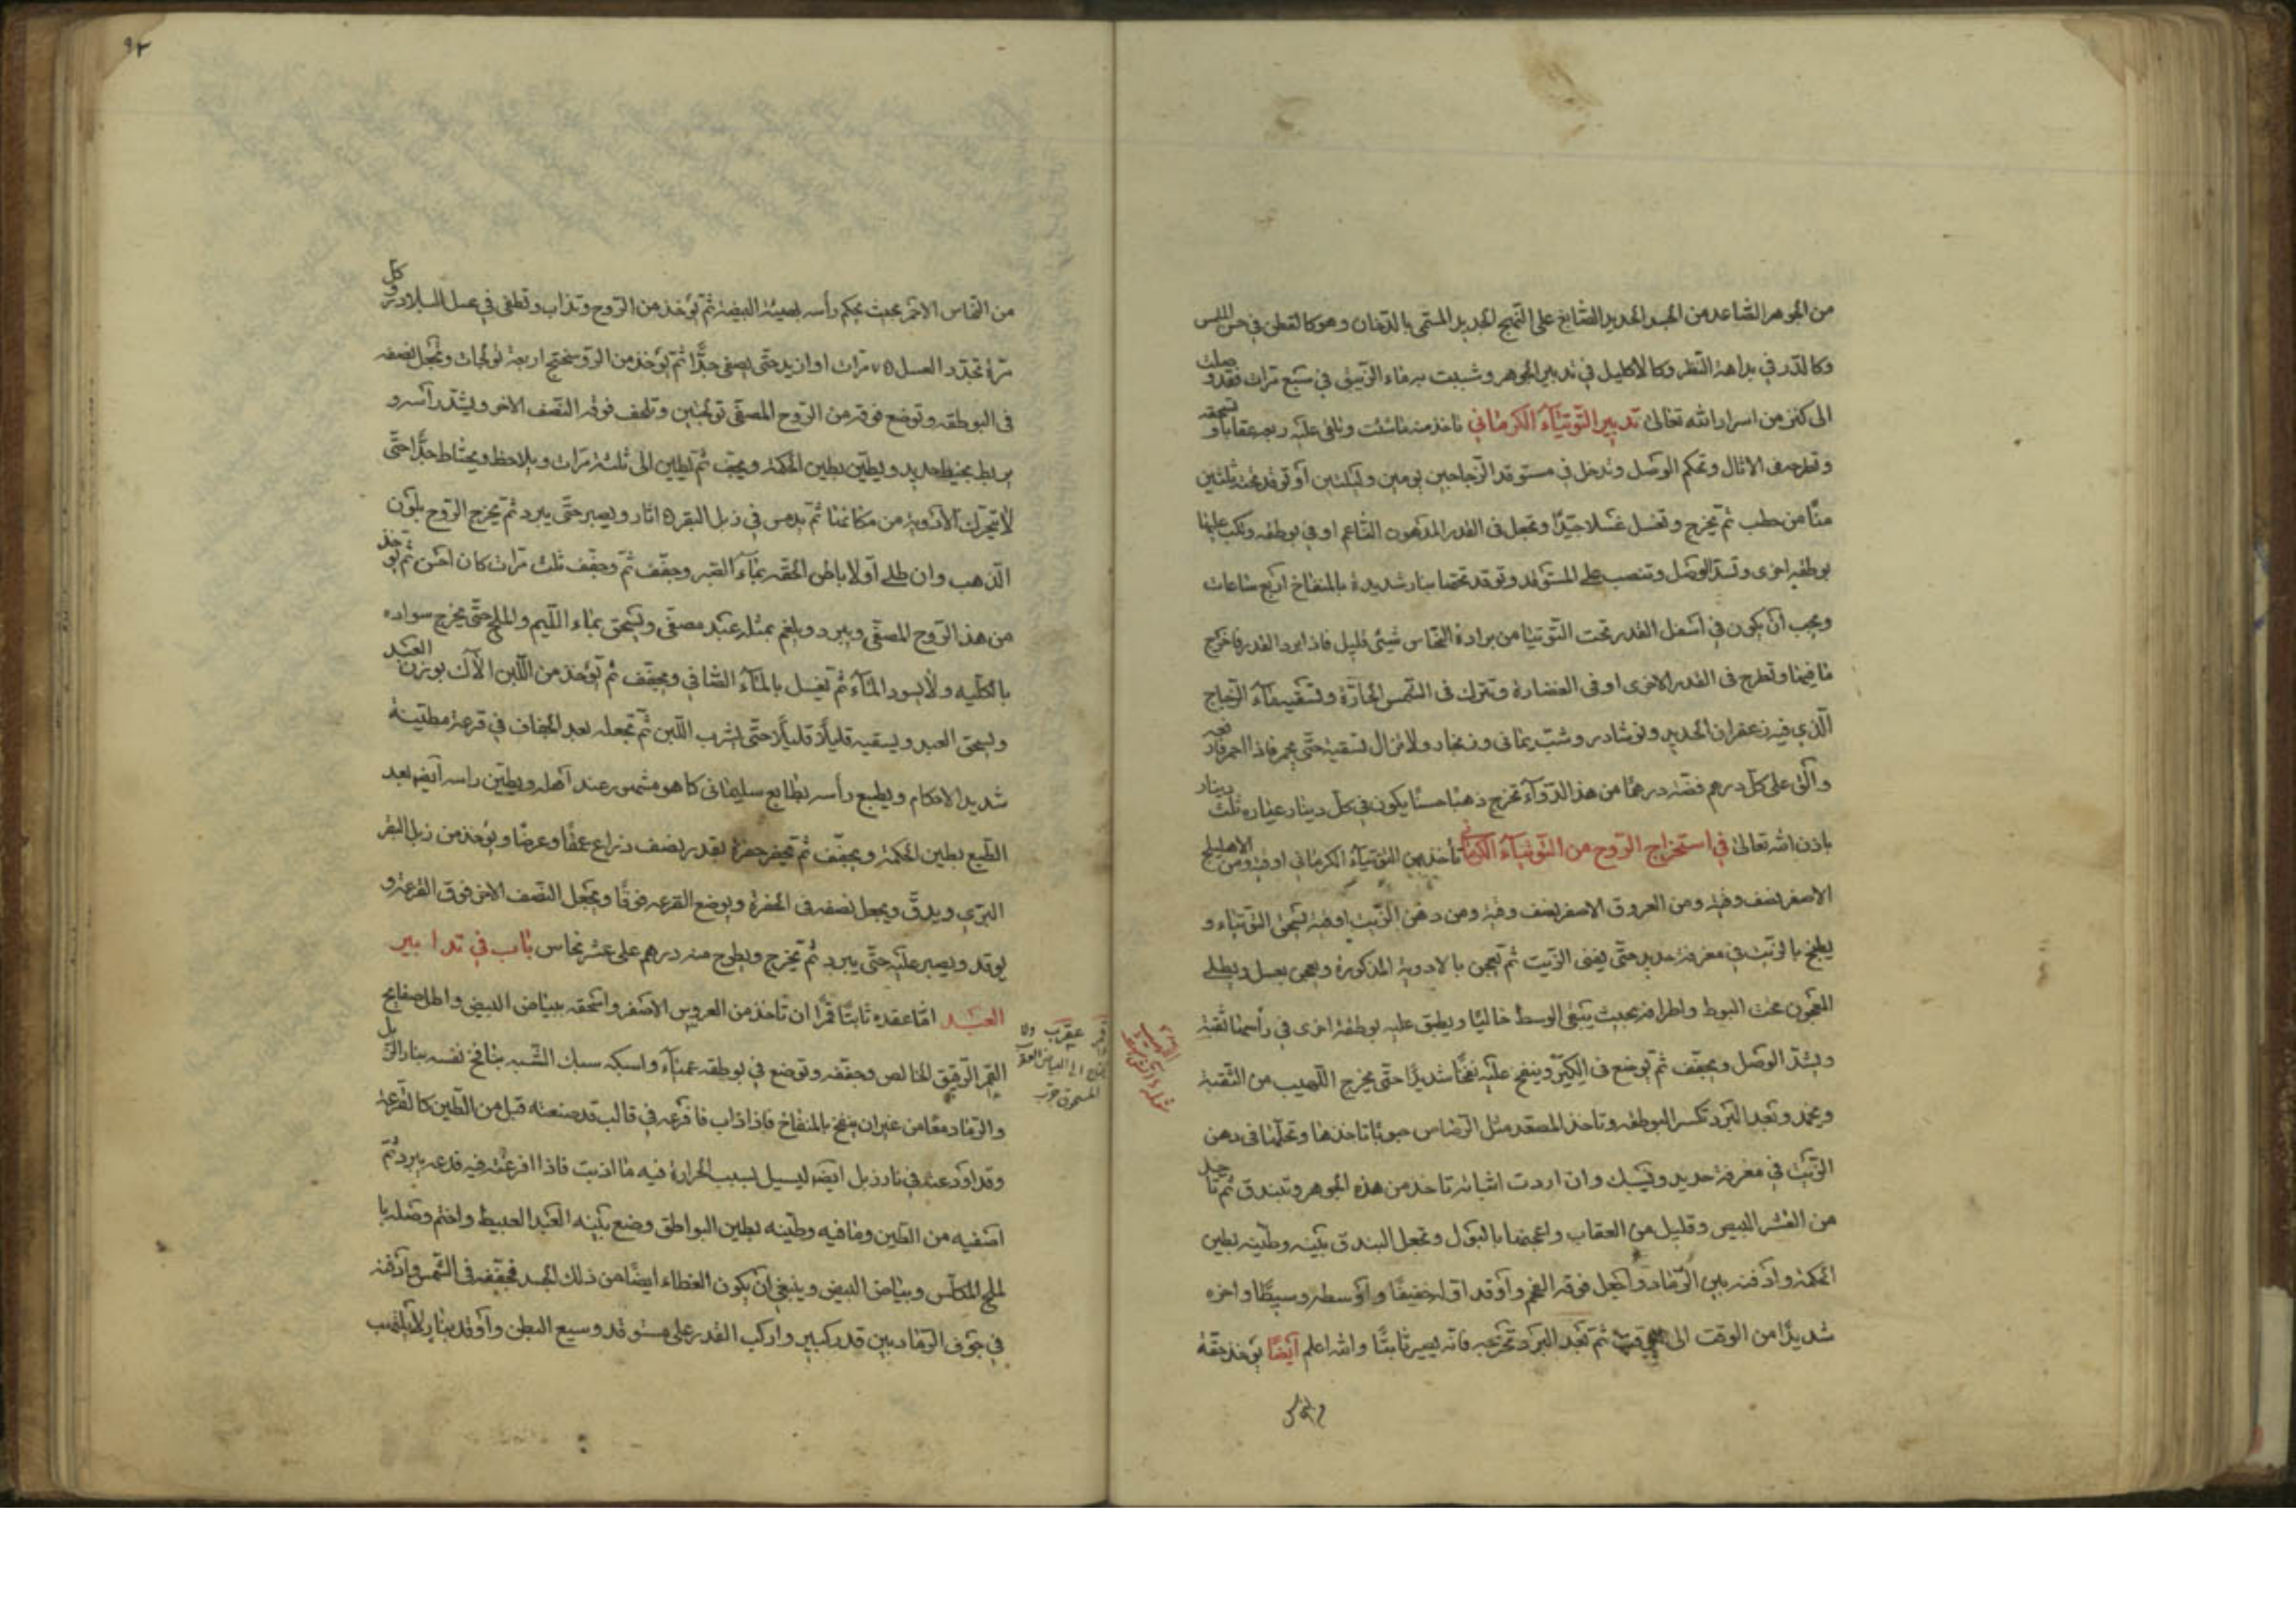 من الجوهر الصاعد من الجسد الجديد الشايع على النهج الجديد المسمى بالدخان وهو كالقطن في حس اللمس
وكالدر في بداهة النظر وكالاكليل في تدبير الجوهر وشبت بماء الزيبق في سبع مرات فقد وصلت
الى كنز من اسرار الله تعالى تدبير التوتياء الكرماني تاخذ منه ما شئت وتلقى عليه ربعه عقابا وتسحقه
وتطرحه في الاثال وتحكم الوصل وتدخل في مستوقد الزجاجين يومين وليلتين أو توقد تحته ثلثين
منا من حطب ثم يخرج وتغسل غسلا جيدا وتجعل في القدر المدهون الناعم او في بوطقه وتكب عليها
بوطقه اخرى وتسد الوصل وتنصب على المستوقد وتوقد تحتها بنار شديدة بالمنفاخ اربع ساعات
ويجب أن يكون في اسفل القدر تحت التوتيا من برادة النحاس شيئ قليل فاذا برد القدر فاخرج
ما فيها وتطرح في القدر الاخرى او في الغضارة وتترك في الشمس الحارة وتسقيه ماء الزجاج
الذي فيه زعفران الحديد ونوشادر وشب يماني وزنجار ولا تزال تسقيه حتى يحمر فاذا احمر فارفعه
والق على كل درهم فضة درهما من هذا الدواء تخرج ذهبا حسنا يكون في كل دينار عياره ثلث دينار
باذن الله تعالى في استخراج الروح من التوتياء الكرماني تأخذ من التوتياء الكرماني اوقية ومن الاهليلج
الاصفر نصف وقية ومن العروق الاصفر نصف وقية ومن دهن الزيت اوقية تسحق التوتياء و
يطبخ بالزيت في مغرفة حديد حتى يفنى الزيت ثم تعجن بالادوية المذكورة وتعجن بعسل ويطلى
المعجون تحت البوط واطرافه بحيث يبقى الوسط خاليا ويطبق عليه بوطقة اخرى في رأسها ثقبة
ويشد الوصل ويجفف ثم توضع في الكير وينفخ عليه نفخا شديدا حتى يخرج اللهيب من الثقبة
ويخمد وتعبد البرد تكسر البوطقه وتاخذ المصعد مثل الرصاص حبوبا تاخذها وتحلها في دهن
الزيت في مغرفة حديد ويسبك وان اردت اثباته تاخذ من هذه الجوهر وتبندق ثم تاخذ
من القشر البيض وقليل من العقاب واعجنها بالبول وتجعل البندق بينه وطينه بطين
الحكمة وادفنه بين الرماد واجعل فوقه الفحم وأوقد اوله خفيفا وأوسطه وسيطا واخره
شديدا من الوقت الى الوقت ثم بعد البرد تخرجه فانه يصير ثابتا والله اعلم أيضا يؤخذ حقة
من النحاس
٩٢
من النحاس الاحمر بحيث يحكم رأسه بصيغة البيضة ثم تؤخذ من الروح وتذاب وتطفى في عسل البلادر وكل
مرة تجدد العسل ٧ مرات او ازيد حتى يصفى جدا ثم تؤخذ من الروسختج اربعة تولجات وتجعل نصفه
في البوطقه وتوضع فوقه من الروح المصفى تولجتين وتلحف فوقه النصف الاخر ويشد رأسه و
يربط بخيط حديد ويطين بطين الحكمة ويجفف ثم يطين الى ثلثة مرات ويلاحظ ويحتاط جدا حتى
لا تتحرك الادوية من مكانها ثم يدمس في ذبل البقر ٥ اثار ويصبر حتى يبرد ثم يخرج الروح بلون
الذهب وان طلى اولا باطن الحقه بماء القبر وجفف ثم وجفف ثلث مرات كان احسن ثم تؤخذ
من هذا الروح المصفى ويبرد ويلغم بمثله عبد مصفى ويسحق بماء الليم والملح حتى يخرج سواده
بالكليه ولا يسود الماء ثم تغسل بالماء الصافي ويجفف ثم تؤخذ من اللبن الآك بوزن العبد
ويسحق العبد ويسقيه قليلا قليلا حتى يشرب اللبن ثم تجعله بعد الجفاف في قرعة مطينة
شديد الاحكام ويطبع رأسه بطابع سليماني كما هو مشهور عند اهله ويطين راسه أيضا بعد
الطبع بطين الحكمة ويجفف ثم تحفر حفرة بقدر نصف ذراع عمقا وعرضا ويؤخذ من زبل البقر
البري ويدق ويجعل نصفه في الحفرة ويوضع القرعه فوقا ويجعل النصف الاخر فوق القرعة و
يوقد ويصبر عليه حتى يبرد ثم يخرج ويطرح منه درهم على عشر نحاس باب في تدابير
العبد اما عقده ثابتا قمرا ان تاخذ من العروس الاصفر واسحقه ببياض البيض واطل صفايح
القمر الرقيق الخالص وجففه وتوضع في بوطقه عمياء واسبكه سبك الشبه بنافخ نفسه بنار الزبل
والرماد معا من غير ان ينفخ بالمنفاخ فاذا ذاب فافرغه في قالب قد صنعته قبل من الطين كالقرعة
وقد اودعته في نار ذبل ايضا ليسيل بسبب الحرارة فيه ما اذبت فاذا افرغته فيه فدعه يبرد ثم
اصفيه من الطين وما فيه وطينه بطين البواطق وضع بينه العبد العبيط واختم وصله با
لملح المكلس وبياض البيض وينبغي ان يكون الغطاء ايضا من ذلك الجسد فجففه في الشمس وادفنه
في جوف الرماد بين قدر كبير واركب القدر على مستوقد وسيع البطن وأوقد بنار لا تلتهب
عقرب ولا